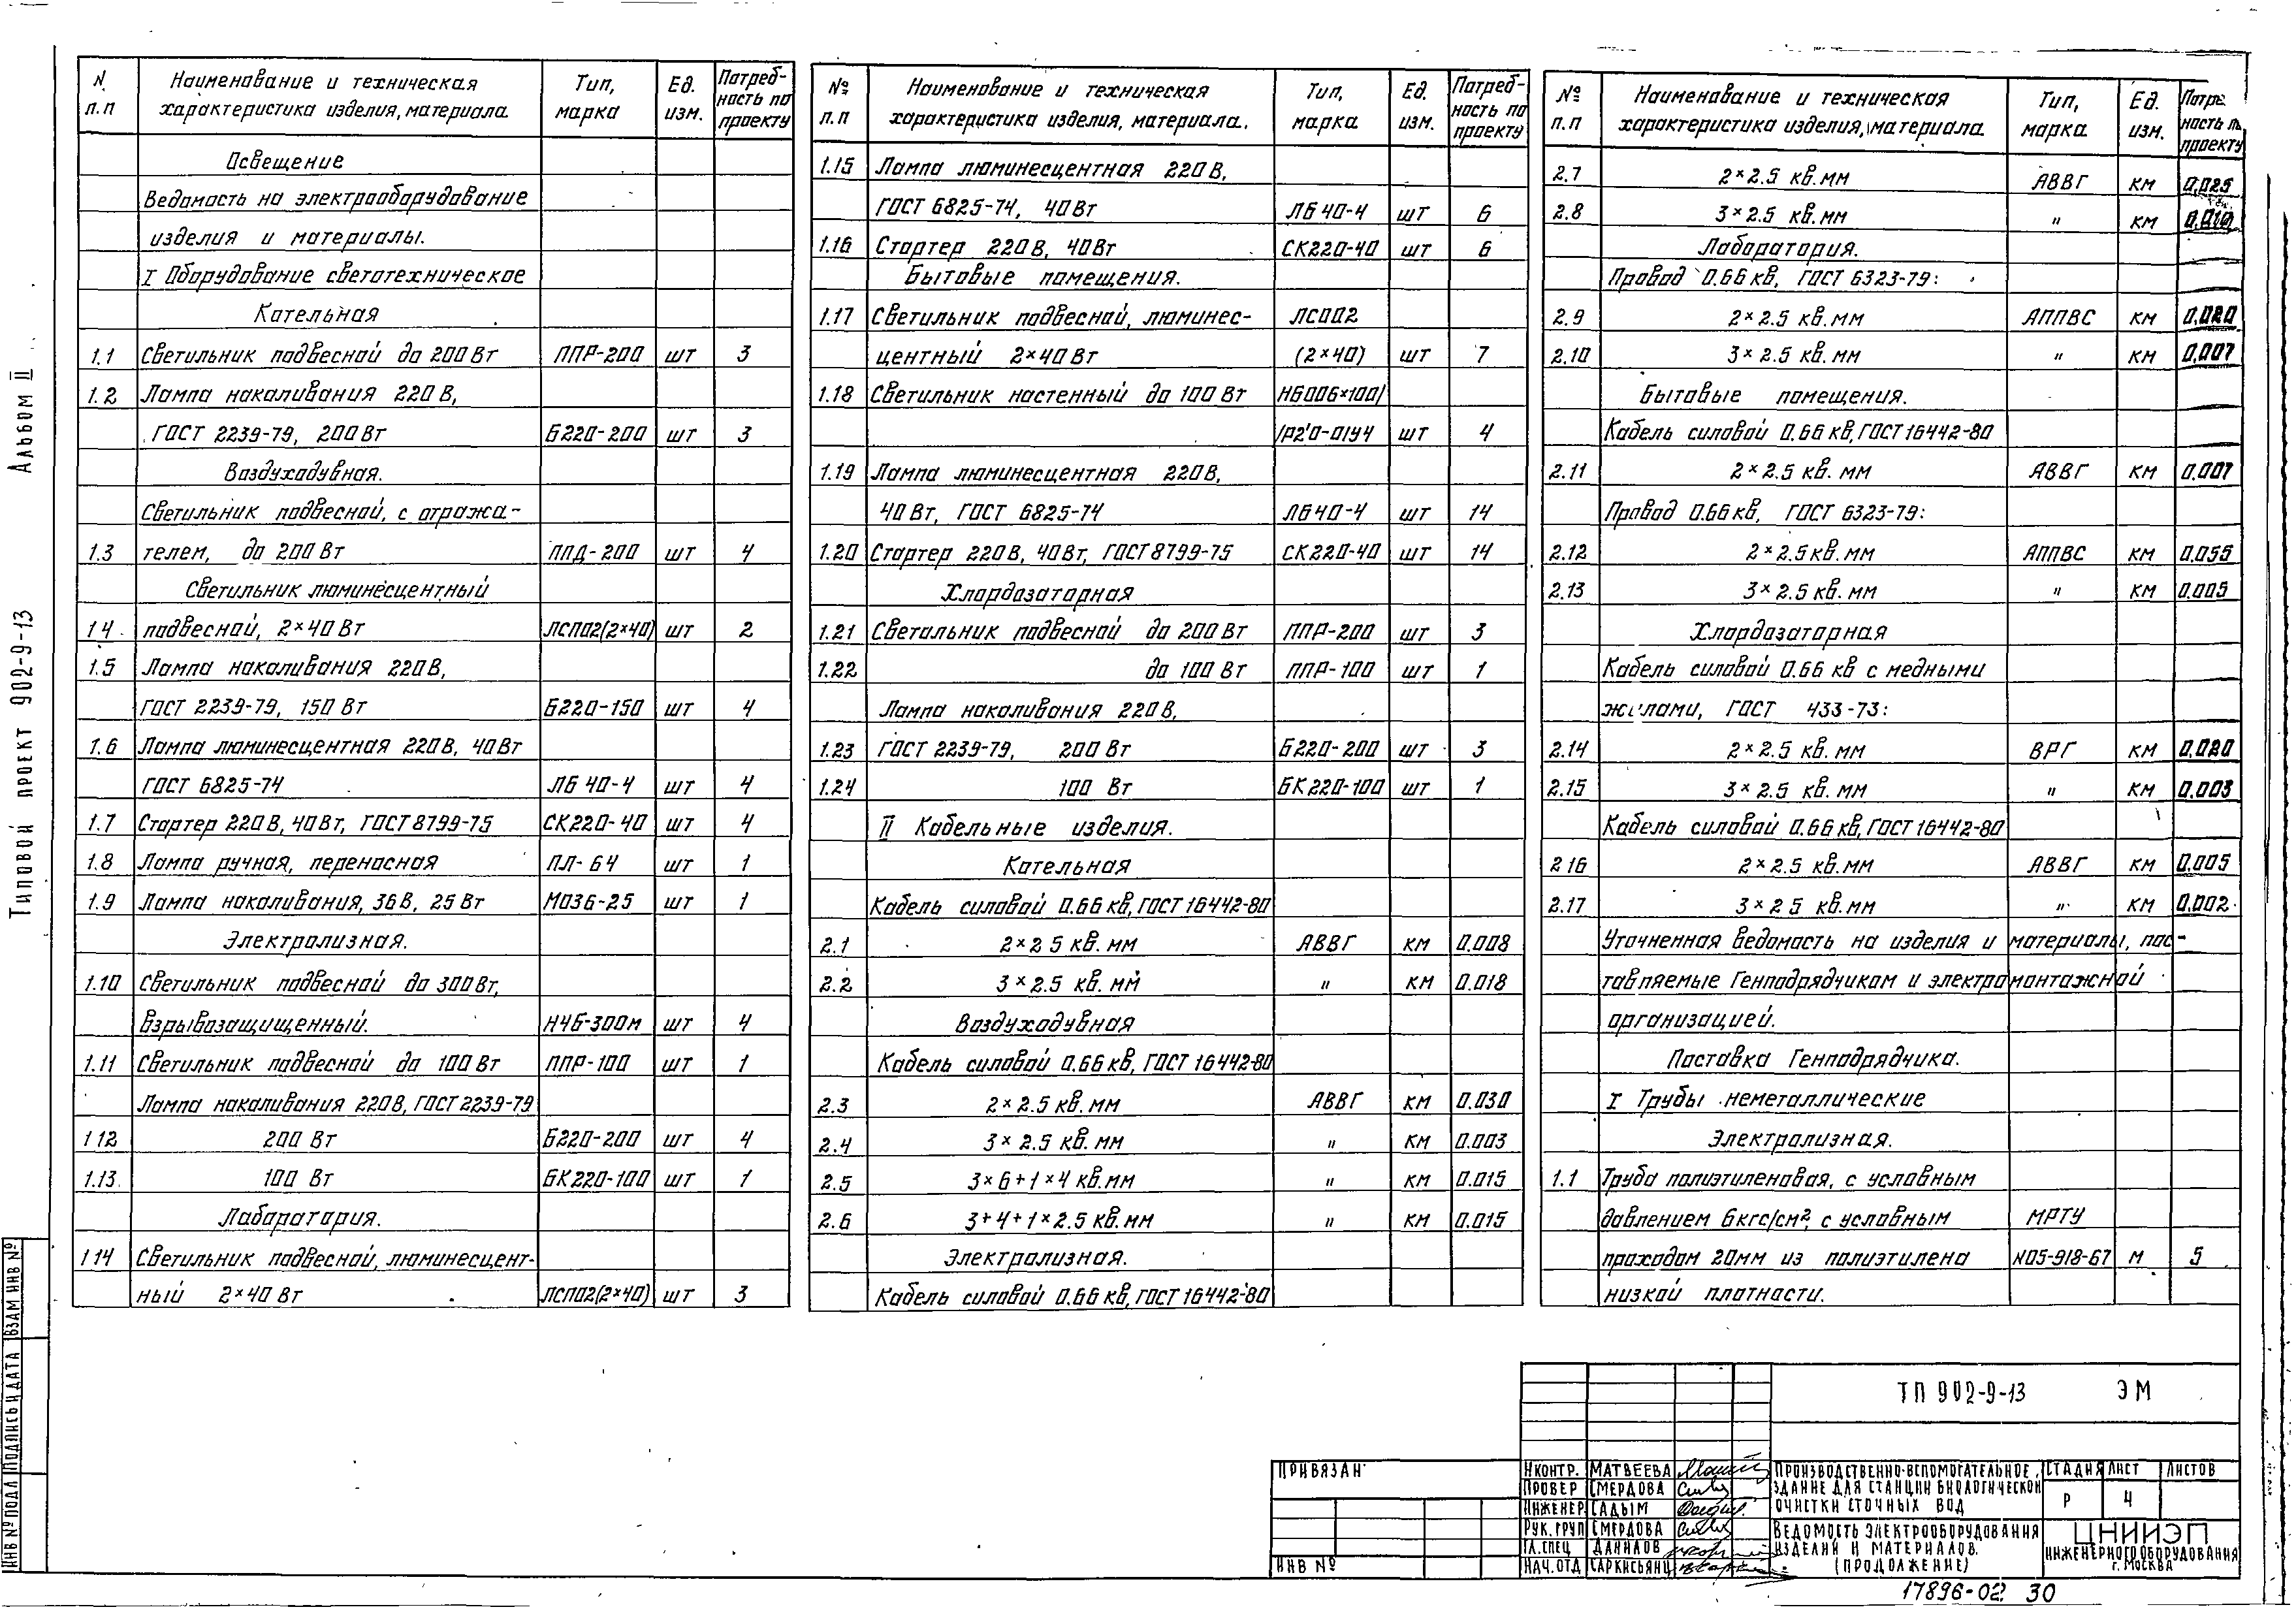 N п.п | Наименование и техническая характеристика изделия, материала | Тип, марка | Ед. изм. | Потребность по проекту
Освещение
Ведомость на электрооборудование
изделия и материалы.
I Оборудование светотехническое
Котельная
1.1 Светильник подвесной до 200 Вт ППР-200 шт 3
1.2 Лампа накаливания 220 В,
ГОСТ 2239-79, 200 Вт Б220-200 шт 3
Воздуходувная.
Светильник подвесной, с отража-
1.3 телем, до 200 Вт ППД-200 шт 4
Светильник люминесцентный
1.4 подвесной, 2×40 Вт ЛСП02(2×40) шт 2
1.5 Лампа накаливания 220 В,
ГОСТ 2239-79, 150 Вт Б220-150 шт 4
1.6 Лампа люминесцентная 220 В, 40 Вт
ГОСТ 6825-74 ЛБ 40-4 шт 4
1.7 Стартер 220 В, 40 Вт, ГОСТ 8799-75 СК220-40 шт 4
1.8 Лампа ручная, переносная ПЛ-64 шт 1
1.9 Лампа накаливания, 36 В, 25 Вт МО36-25 шт 1
Электролизная.
1.10 Светильник подвесной до 300 Вт,
взрывозащищенный. Н4Б-300м шт 4
1.11 Светильник подвесной до 100 Вт ППР-100 шт 1
Лампа накаливания 220 В, ГОСТ 2239-79
1.12 200 Вт Б220-200 шт 4
1.13. 100 Вт БК220-100 шт 1
Лаборатория.
1.14 Светильник подвесной, люминесцент-
ный 2×40 Вт ЛСП02(2×40) шт 3
№ п.п | Наименование и техническая характеристика изделия, материала. | Тип, марка | Ед. изм. | Потребность по проекту
1.15 Лампа люминесцентная 220 В,
ГОСТ 6825-74, 40 Вт ЛБ 40-4 шт 6
1.16 Стартер 220 В, 40 Вт СК220-40 шт 6
Бытовые помещения.
1.17 Светильник подвесной, люминес- ЛСП02
центный 2×40 Вт (2×40) шт 7
1.18 Светильник настенный до 100 Вт НБ006×100/
/Р2'0-01У4 шт 4
1.19 Лампа люминесцентная 220 В,
40 Вт, ГОСТ 6825-74 ЛБ40-4 шт 14
1.20 Стартер 220 В, 40 Вт, ГОСТ 8799-75 СК220-40 шт 14
Хлордозаторная
1.21 Светильник подвесной до 200 Вт ППР-200 шт 3
1.22 до 100 Вт ППР-100 шт 1
Лампа накаливания 220 В,
1.23 ГОСТ 2239-79, 200 Вт Б220-200 шт 3
1.24 100 Вт БК220-100 шт 1
II Кабельные изделия.
Котельная
Кабель силовой 0.66 кв, ГОСТ 16442-80
2.1 2×2.5 кв. мм АВВГ км 0.008
2.2 3×2.5 кв. мм " км 0.018
Воздуходувная
Кабель силовой 0.66 кв, ГОСТ 16442-80
2.3 2×2.5 кв. мм АВВГ км 0.030
2.4 3×2.5 кв. мм " км 0.003
2.5 3×6+1×4 кв.мм " км 0.015
2.6 3+4+1×2.5 кв.мм " км 0.015
Электролизная.
Кабель силовой 0.66 кв, ГОСТ 16442-80
№ п.п | Наименование и техническая характеристика изделия, материала | Тип, марка | Ед. изм. | Потре. ность по проекту
2.7 2×2.5 кв.мм АВВГ км 0.025
2.8 3×2.5 кв.мм " км 0.010
Лаборатория.
Провод 0.66 кв, ГОСТ 6323-79:
2.9 2×2.5 кв.мм АППВС км 0.020
2.10 3×2.5 кв.мм " км 0.007
Бытовые помещения.
Кабель силовой 0.66 кв, ГОСТ 16442-80
2.11 2×2.5 кв. мм АВВГ км 0.007
Провод 0.66 кв, ГОСТ 6323-79:
2.12 2×2.5 кв. мм АППВС км 0.055
2.13 3×2.5 кв. мм " км 0.005
Хлордозаторная
Кабель силовой 0.66 кв с медными
жилами, ГОСТ 433-73:
2.14 2×2.5 кв. мм ВРГ км 0.020
2.15 3×2.5 кв. мм " км 0.003
Кабель силовой 0.66 кв, ГОСТ 16442-80
2.16 2×2.5 кв. мм АВВГ км 0.005
2.17 3×2.5 кв.мм " км 0.002
Уточненная ведомость на изделия и материалы, пос-
тавляемые Генподрядчиком и электромонтажной
организацией.
Поставка Генподрядчика.
I Трубы неметаллические
Электролизная.
1.1 Труба полиэтиленовая, с условным
давлением 6кгс/см², с условным МРТУ
проходом 20мм из полиэтилена N05-918-67 м 5
низкой плотности.
Типовой проект 902-9-13 Альбом II
ИНВ № ПОДЛ ПОДПИСЬ И ДАТА ВЗАМ ИНВ №
ПРИВЯЗАН
ИНВ №
ТП 902-9-13 ЭМ
Н КОНТР. МАТВЕЕВА
ПРОВЕР СМЕРДОВА
ИНЖЕНЕР САДЫМ
РУК. ГРУП СМЕРДОВА
ГЛ. СПЕЦ ДАНИЛОВ
НАЧ. ОТД САРКИСЬЯНЦ
ПРОИЗВОДСТВЕННО-ВСПОМОГАТЕЛЬНОЕ
ЗДАНИЕ ДЛЯ СТАНЦИИ БИОЛОГИЧЕСКОЙ
ОЧИСТКИ СТОЧНЫХ ВОД
СТАДИЯ ЛИСТ ЛИСТОВ
Р 4
ВЕДОМОСТЬ ЭЛЕКТРООБОРУДОВАНИЯ
ИЗДЕЛИЙ И МАТЕРИАЛОВ.
(ПРОДОЛЖЕНИЕ)
ЦНИИЭП
ИНЖЕНЕРНОГО ОБОРУДОВАНИЯ
г. МОСКВА
17896-02 30